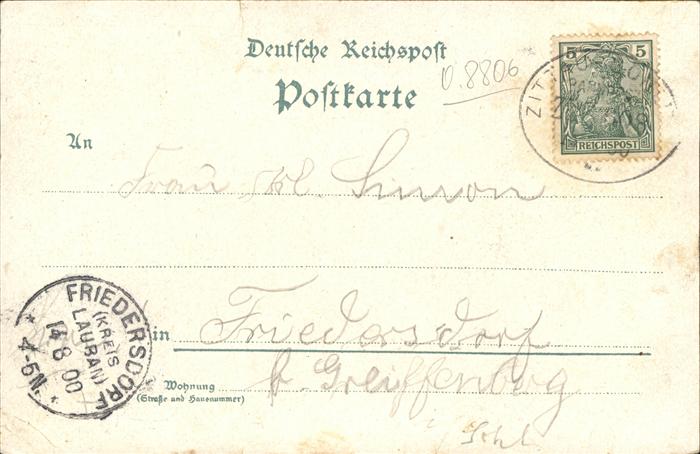 Deutsche Reichspost
Postkarte
0.8806
5 5
REICHSPOST
ZITTAU
An
Frau Simon
in Friedersdorf
b. Greiffenberg
Schl.
Wohnung
(Straße und Hausnummer)
FRIEDERSDORF
(KREIS
LAUBAN)
14 8 00
* 4-5N. *